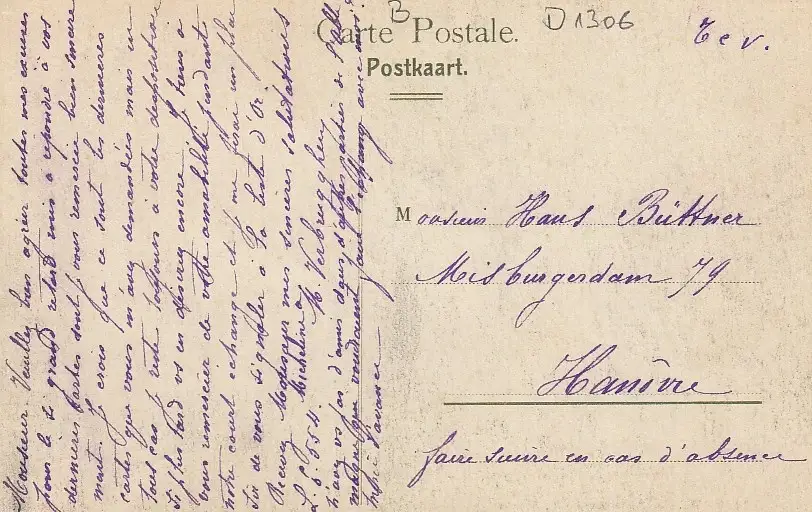 B
D 1306
Carte Postale.
Postkaart.
Monsieur Hans Büttner
Misburgerdam 79
Hanôvre
faire suivre en cas d'absence
Monsieur Veuillez bien agréer toutes mes excuses
pour le si grand retard mis à répondre à vos
dernières cartes dont je vous remercie bien sincère
ment. Je crois que ce sont les dernières
cartes que vous m'avez demandées mais en
tous cas je reste toujours à votre disposition
si plus tard vs en désirez encore. Je tiens à
vous remercier de votre amabilité pendant
notre court échange et me ferai un plai
sir de vous signaler à La liste d'Or.
Recevez Monsieur mes sincères salutations
M. Verbrugghen
L. S. 554. Micheline
n'avez vs pas d'amis dans d'autres parties de
qui voudraient faire l'échange avec moi
merci d'avance